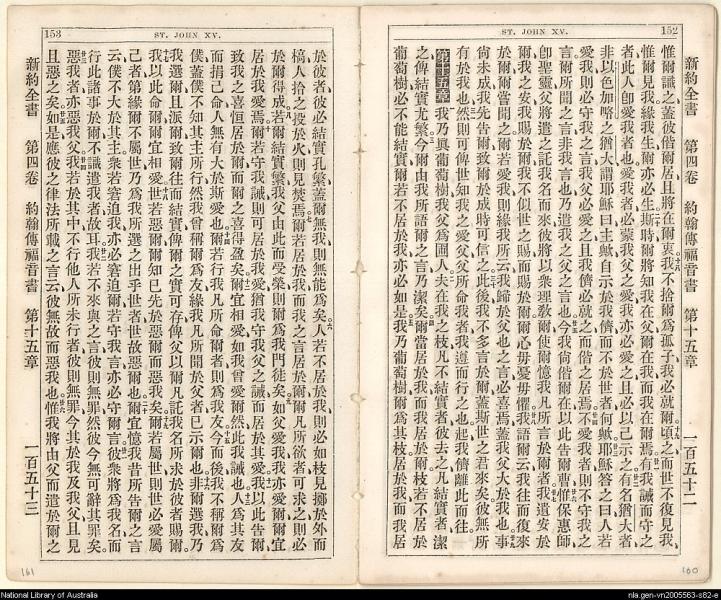 ST. JOHN XV.
152
新約全書 第四卷 約翰傳福音書 第十五章 一百五十二
惟爾識之蓋彼偕爾居且將在爾衷我不捨爾爲孤子我必就爾頃之而世不復見我
惟爾見我緣我生爾亦必生斯時爾將知我在父爾在我而我在爾焉有我誡而守之
者此人卽愛我者也愛我者必蒙我父之愛我亦必愛之且必以己示之有名猶大者
非以色加畧之猶大謂耶穌曰主歟自示於我儕而不於世者何歟耶穌答之曰人若
愛我則必守我之言我父必愛之且我儕必就之而偕之居焉不愛我者則不守我之
言爾所聞之言非我言也乃遣我之父之言也今我尚偕爾在以此告爾曹惟保惠師
卽聖靈父將遣之託我名而來彼將以衆理敎爾使爾憶我凡所言於爾者我遺安於
爾我之安我賜於爾我不似世之賜而賜於爾爾心毋憂毋懼我語爾云我往而復來
於爾爾嘗聞之爾若愛我則緣我所云我歸於父也之言必喜焉蓋我父大於我也事
尚未成我先告爾致爾於成時可信之此後我不多言於爾蓋斯世之君來矣彼無所
有於我也然則可俾世知我之愛父父所命我者我遵而行之也起我儕離此而往
第十五章 我乃眞葡萄樹我父爲圃人夫在我之枝凡不結實者彼去之凡結實者潔
之俾結實尤繁今爾由我所語爾之言乃潔矣爾當居於我我亦居於爾枝若不居於
葡萄樹必不能結實爾若不居於我亦必如是我乃葡萄樹爾爲其枝居於我而我居
160
153
ST. JOHN XV.
於彼者彼必結實孔繁蓋爾無我則無能爲矣人若不居於我則必如枝見擲於外而
槁人拾之投於火則見焚焉爾若居於我而我之言居於爾凡所欲者可求之則必
於爾得成爾若結實繁我父由此而受榮則爾爲我門徒矣如父愛我我亦愛爾爾宜
居於我愛焉爾若守我誡則可居於我愛猶我守我父之誡而居於其愛我以此告爾
致我之喜恒居於爾而爾之喜得盈矣爾宜相愛如我曾愛爾然此我誡也人爲其友
而捐己命人無有大於斯愛也爾若行我凡所命爾者則爲我友今而後我不稱爾爲
僕蓋僕不知其主所行然我曾稱爾爲友緣我凡所聞於父者已示爾也非爾選我乃
我選爾且派爾致爾往而結實俾爾之實可存俾父以爾凡託我名所求於彼者賜爾
我以此命爾爾宜相愛世若惡爾爾知已先於惡爾而惡我矣爾若屬世則世必愛屬
己者第緣爾不屬世乃爲我所選之出乎世者世故惡爾也爾宜憶我昔所告爾之言
云僕不大於其主衆若窘迫我亦必窘迫爾若守我言亦必守爾言彼衆將爲我名而
行此諸事於爾不識遣我者故耳我若不來與之言彼則無罪然彼今無可辭其罪矣
惡我者亦惡我父我若於其中不行他人所未行者彼則無罪今其於我及我父且見
且惡之矣如是應彼之律法所載之言云彼無故而惡我也惟我將由父而遣於爾之
新約全書 第四卷 約翰傳福音書 第十五章 一百五十三
161
National Library of Australia
nla.gen-vn2005563-s82-e